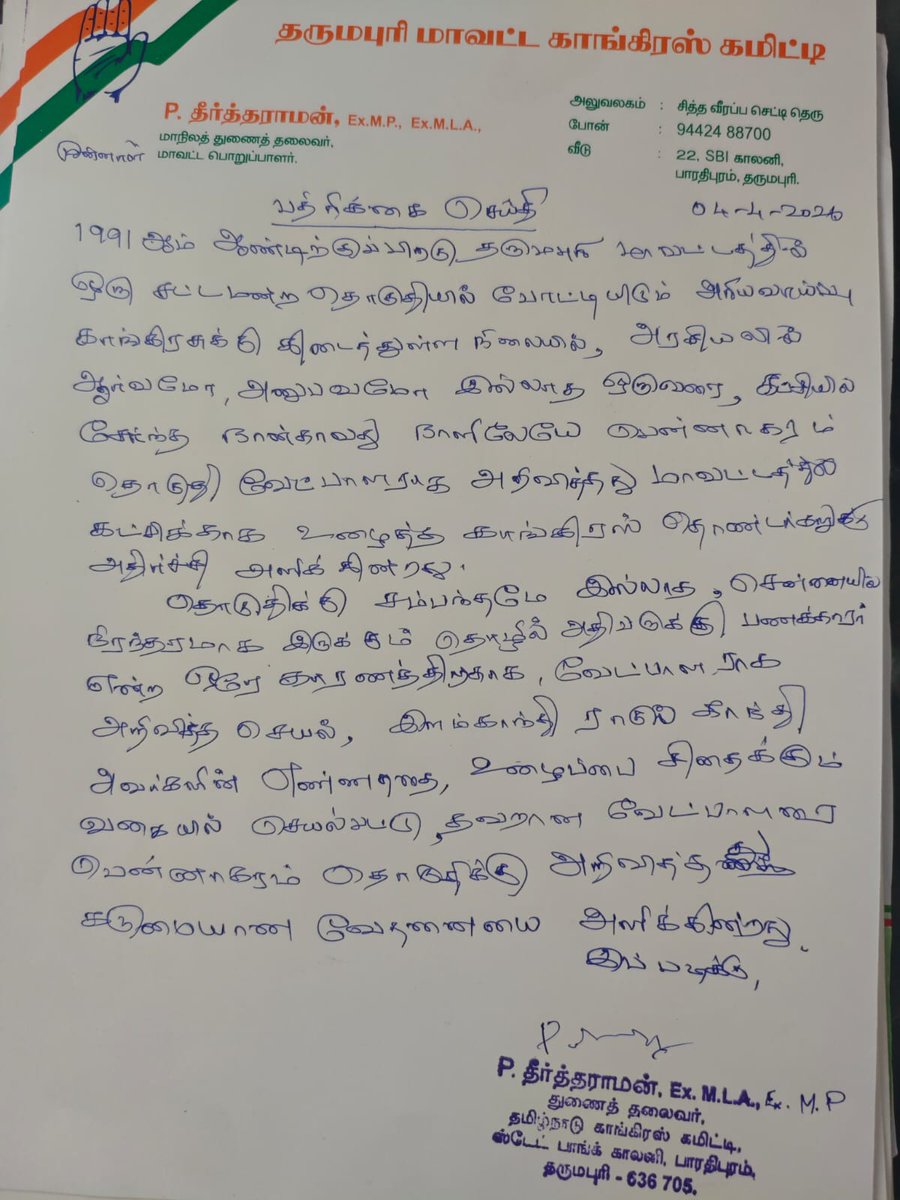 தருமபுரி மாவட்ட காங்கிரஸ் கமிட்டி
P. தீர்த்தராமன், Ex.M.P., Ex.M.L.A.,
முன்னாள் மாநிலத் துணைத் தலைவர்,
மாவட்ட பொறுப்பாளர்.
அலுவலகம் : சித்த வீரப்ப செட்டி தெரு
போன் : 94424 88700
வீடு : 22, SBI காலனி,
பாரதிபுரம், தருமபுரி.
பத்திரிக்கை செய்தி
04-4-2026
1991 ஆம் ஆண்டிற்குப்பிறகு தருமபுரி மாவட்டத்தில்
ஒரு சட்டமன்ற தொகுதியில் போட்டியிடும் அரியவாய்ப்பு
காங்கிரசுக்கு கிடைத்துள்ள நிலையில், அரசியலில்
ஆர்வமோ, அனுபவமோ இல்லாத ஒருவரை, கட்சியில்
சேர்ந்த நான்காவது நாளிலேயே பென்னாகரம்
தொகுதி வேட்பாளராக அறிவித்தது மாவட்டத்தில்
கட்சிக்காக உழைத்த காங்கிரஸ் தொண்டர்களுக்கு
அதிர்ச்சி அளிக்கின்றது.
தொகுதிக்கு சம்பந்தமே இல்லாத, சென்னையில்
நிரந்தரமாக இருக்கும் தொழில் அதிபருக்கு பணக்காரர்
என்ற ஒரே காரணத்திற்காக, வேட்பாளராக
அறிவித்த செயல், இளம்காந்தி ராகுல் காந்தி
அவர்களின் எண்ணத்தை, உழைப்பை சிதைக்கும்
வகையில் செயல்பட்டு, தவறான வேட்பாளரை
பென்னாகரம் தொகுதிக்கு அறிவித்தது
கடுமையான வேதனையை அளிக்கின்றது.
இப்படிக்கு,
P. தீர்த்தராமன், Ex. M.L.A., Ex. M.P
துணைத் தலைவர்,
தமிழ்நாடு காங்கிரஸ் கமிட்டி,
ஸ்டேட் பாங்க் காலனி, பாரதிபுரம்,
தருமபுரி - 636 705.